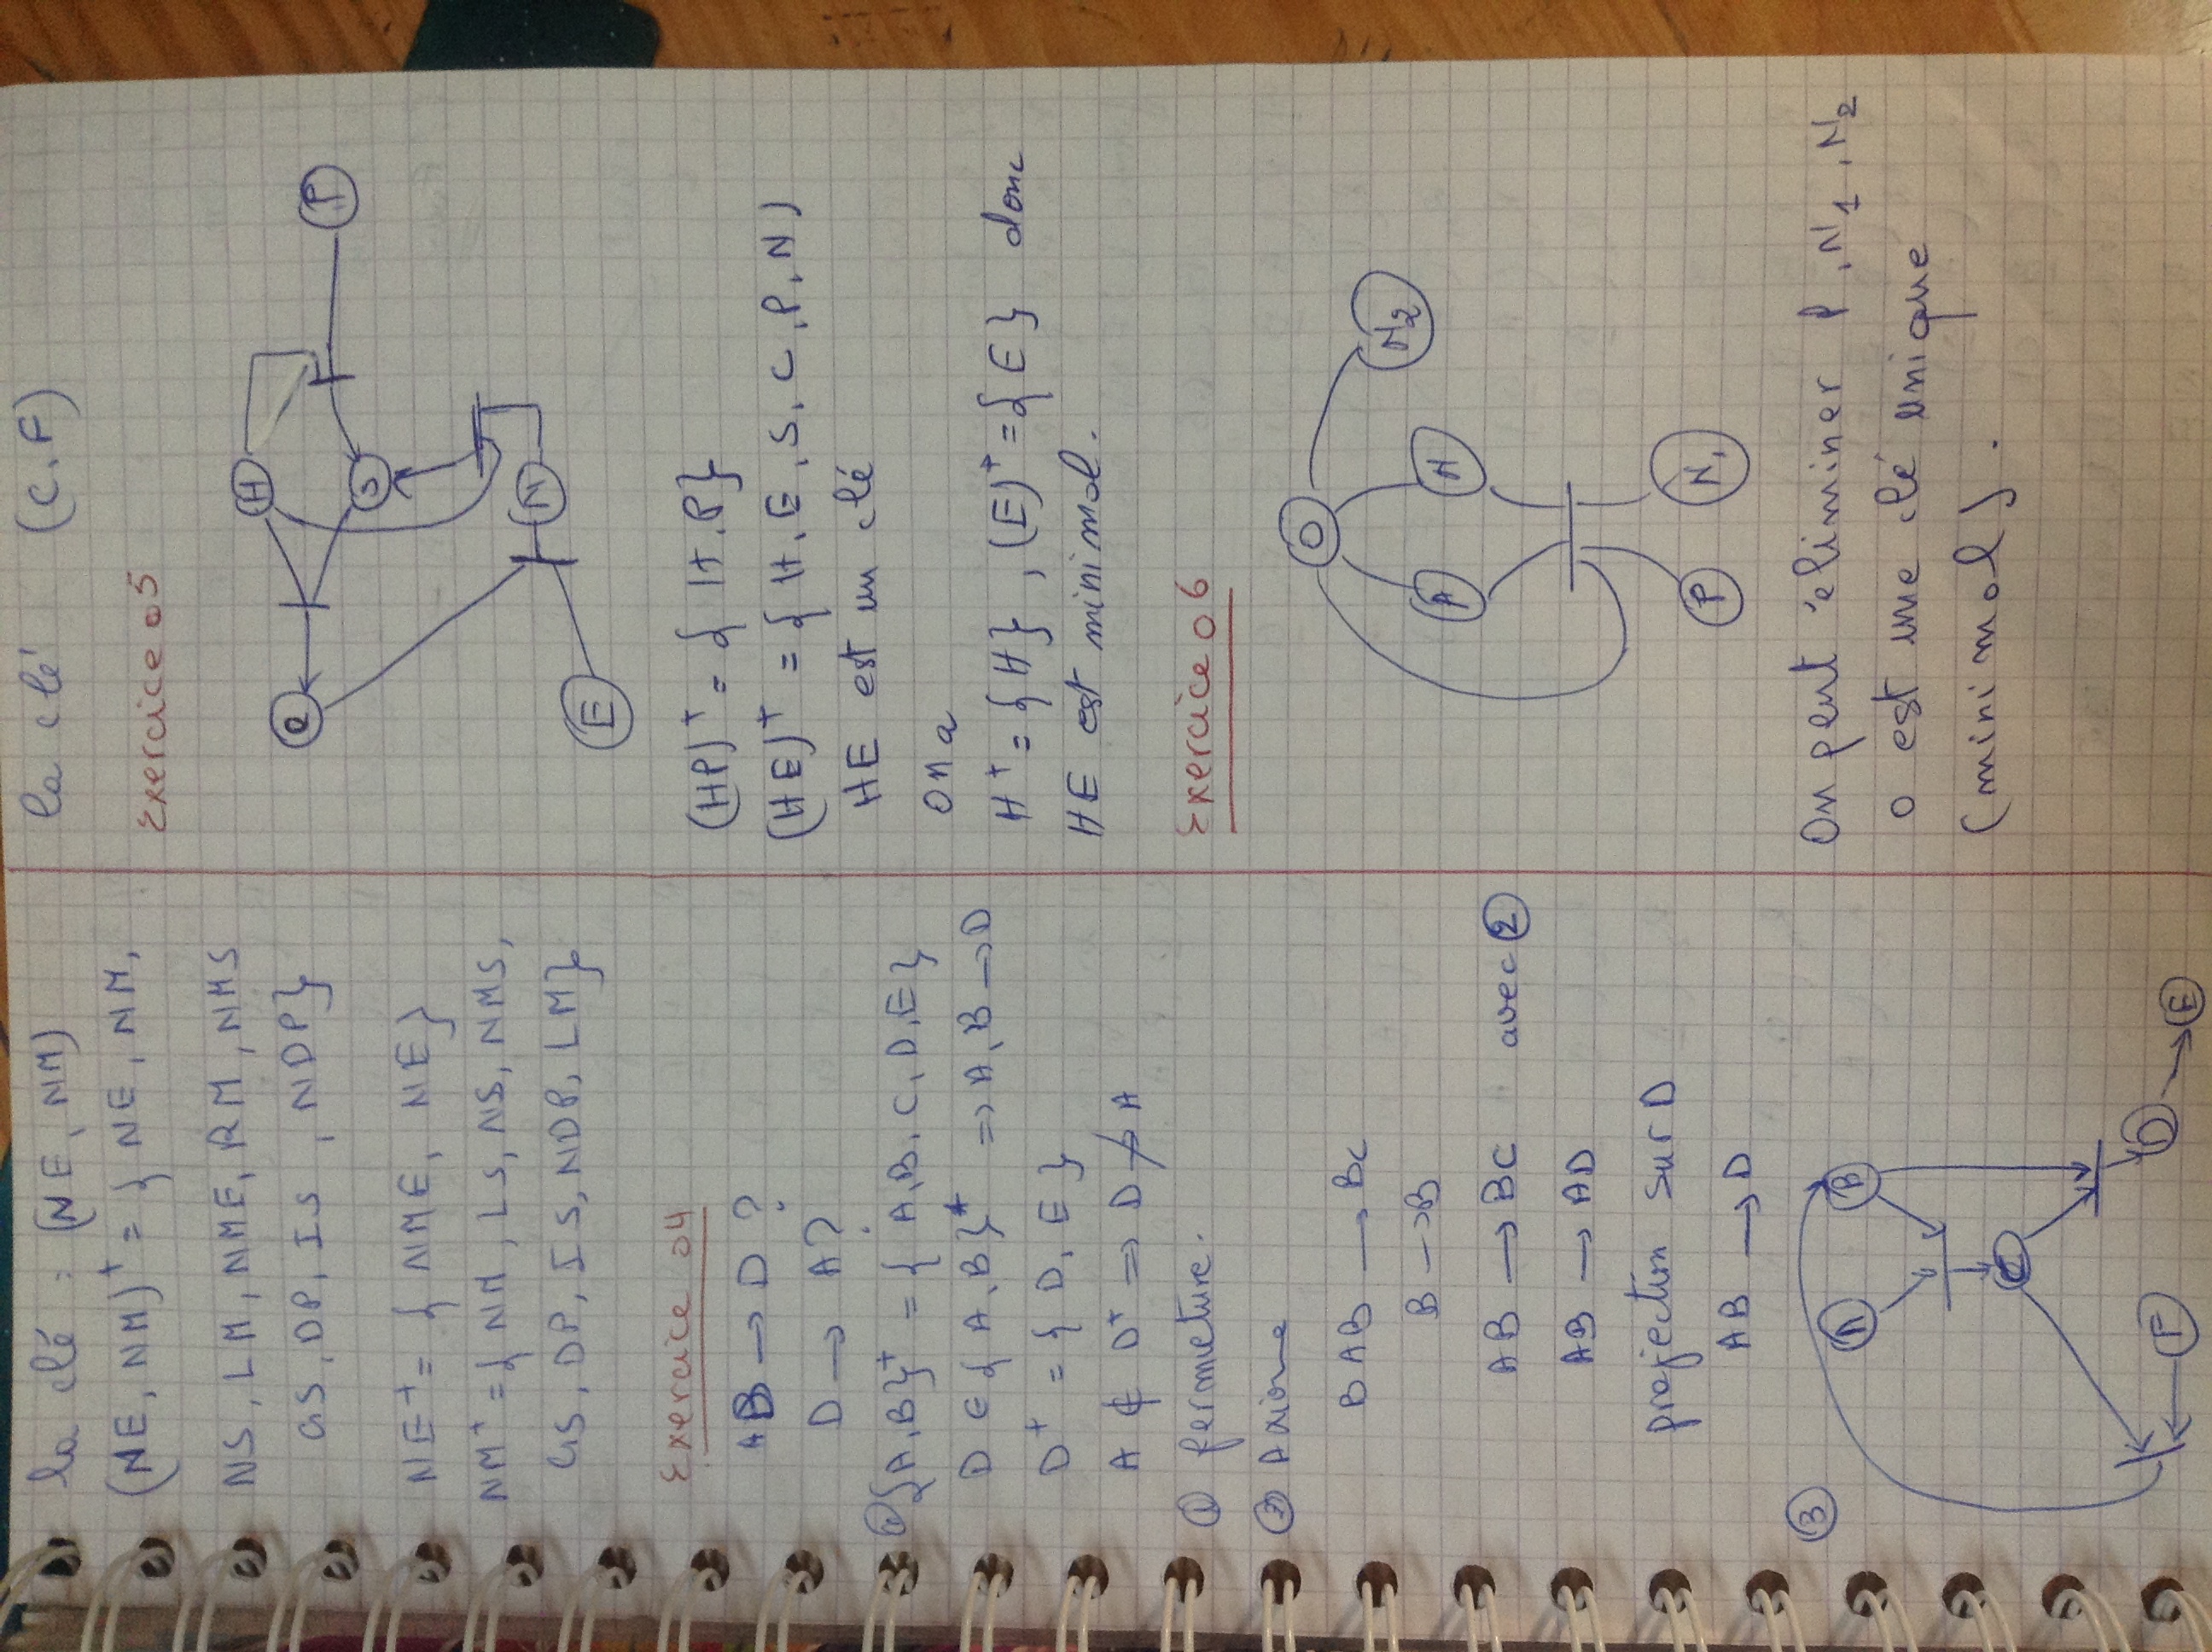 la clé : (NE, NM)
(NE, NM)⁺ = { NE, NM,
NS, LM, NME, RM, NMS
GS, DP, IS, NDP}
NE⁺ = { NME, NE}
NM⁺ = { NM, LS, NS, NMS,
GS, DP, IS, NDP, LM}
Exercice 04
AB → D ?
D → A ?
{A, B}⁺ = { A, B, C, D, E}
D ∈ { A, B}⁺ => A, B → D
D⁺ = { D, E }
A ∉ D⁺ => D ↛ A
① fermeture.
② Axiome
BAB → BC
B → B
AB → BC avec ②
AB → AD
projection sur D
AB → D
③
A B
C
F D E
la clé (C, F)
Exercice 05
H
C P
S
N
E
(HP)⁺ = { H, P}
(HE)⁺ = { H, E, S, C, P, N }
HE est un clé
on a
H⁺ = {H} , (E)⁺ = { E } donc
HE est minimol.
Exercice 06
O
N2
A N
P N1
On peut éliminer P, N1, N2
O est une clé unique
(minimol).